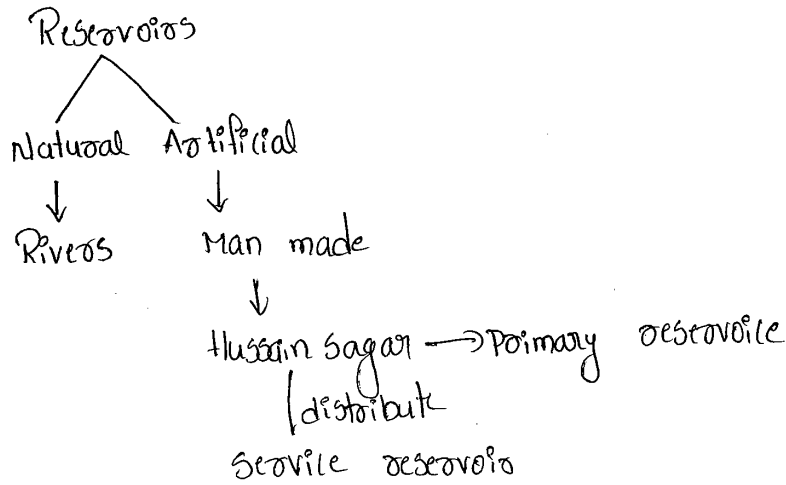 Reservoirs
Natural Artificial
Rivers Man made
Hussain Sagar → Primary reservoile
distribute
Servile reservoir